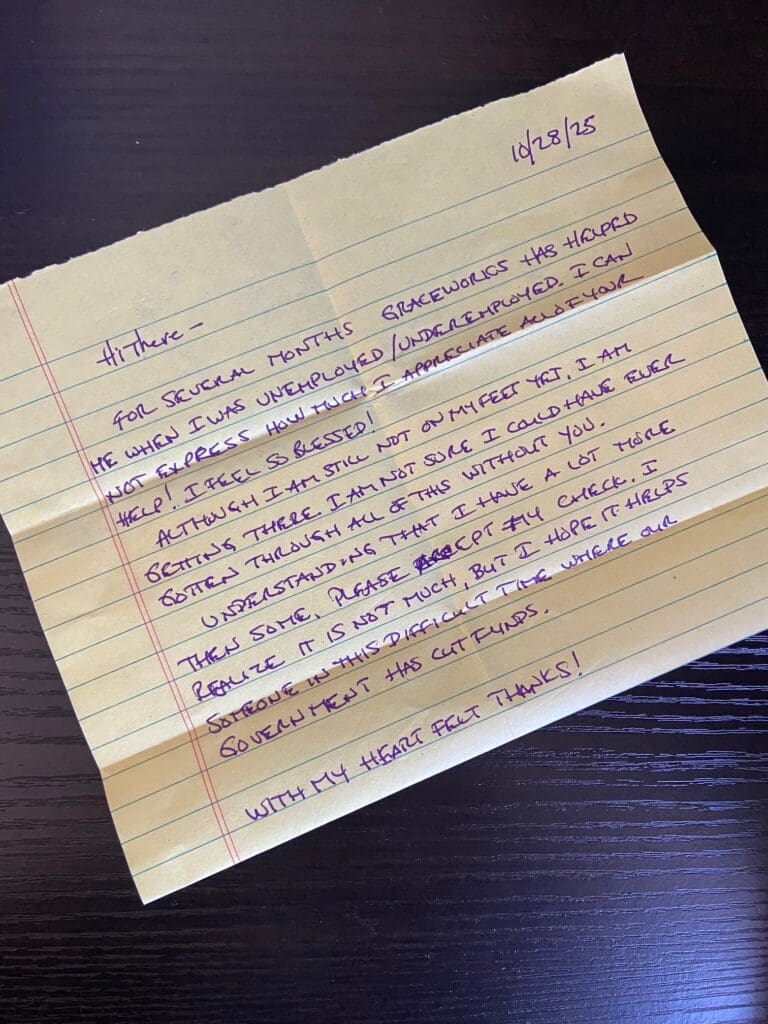 10/28/25
Hi There –
FOR SEVERAL MONTHS GRACEWORKS HAS HELPED
ME WHEN I WAS UNEMPLOYED/UNDEREMPLOYED. I CAN
NOT EXPRESS HOW MUCH I APPRECIATE ALL OF YOUR
HELP! I FEEL SO BLESSED!
ALTHOUGH I AM STILL NOT ON MY FEET YET, I AM
GETTING THERE. I AM NOT SURE I COULD HAVE EVER
GOTTEN THROUGH ALL OF THIS WITHOUT YOU.
UNDERSTANDING THAT I HAVE A LOT MORE
THEN SOME, PLEASE ACCEPT MY CHECK. I
REALIZE IT IS NOT MUCH, BUT I HOPE IT HELPS
SOMEONE IN THIS DIFFICULT TIME WHERE OUR
GOVERNMENT HAS CUT FUNDS.
WITH MY HEART FELT THANKS!